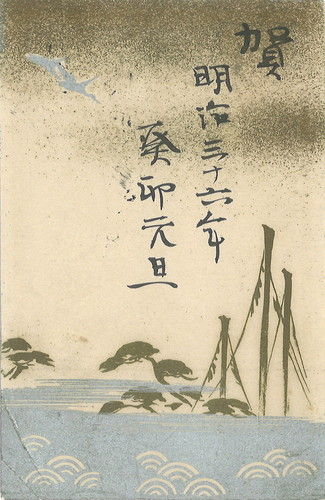 賀
明治三十六年
癸卯元旦